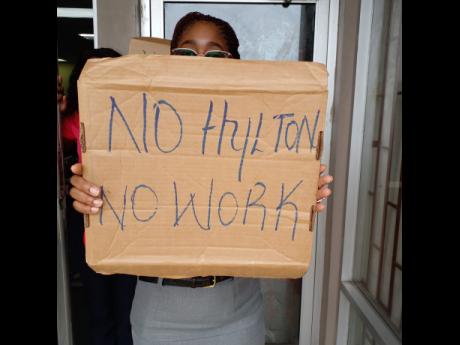 NO HYLTON
NO WORK